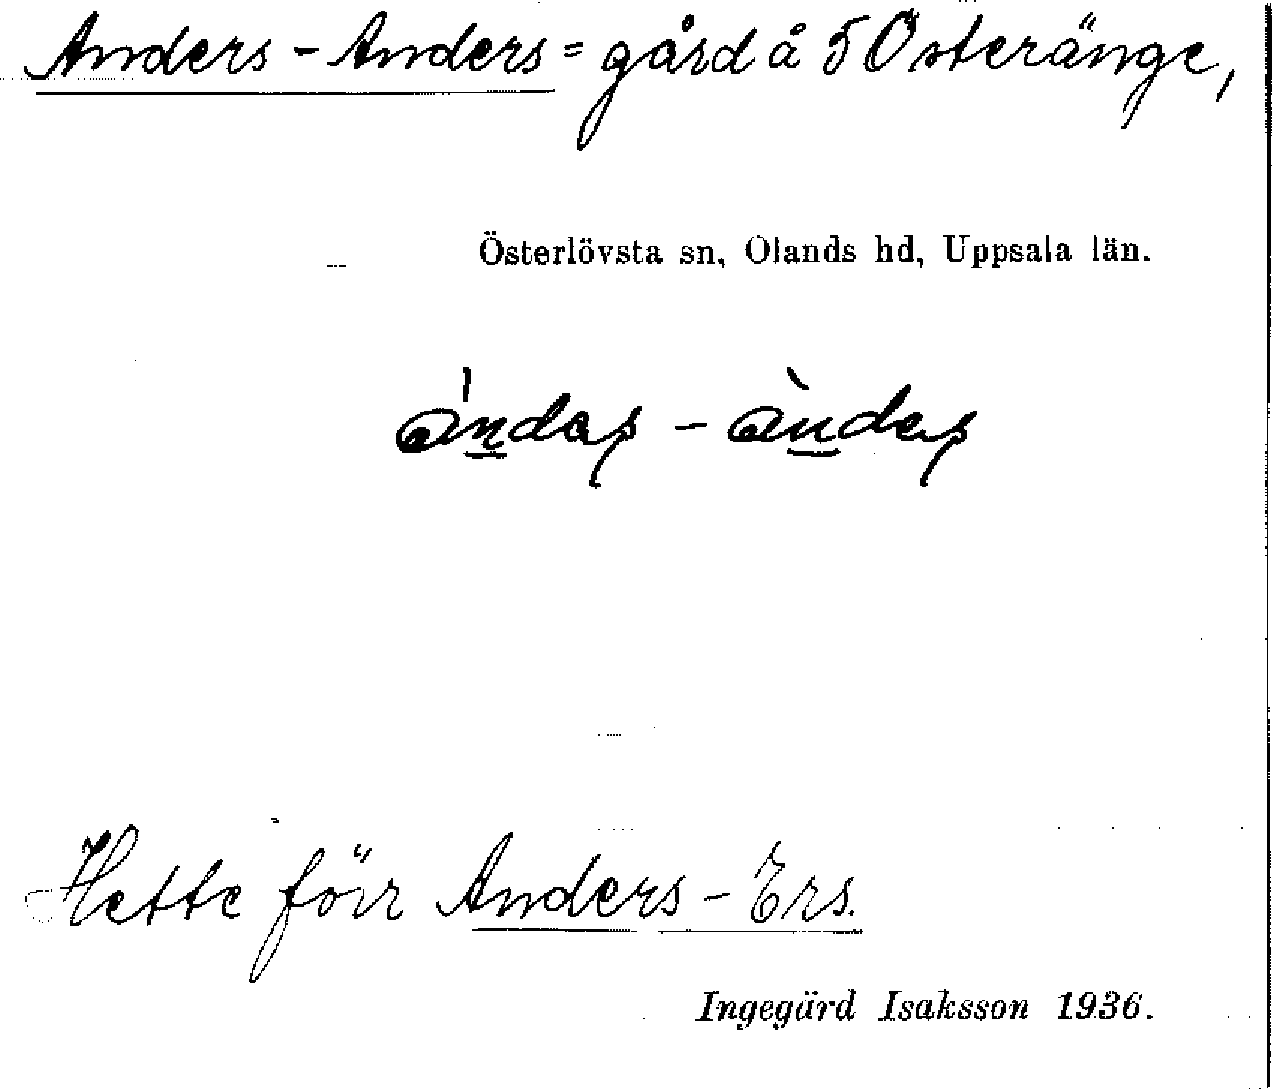 Anders-Anders = gård å 5 Österänge,
Österlövsta sn, Olands hd, Uppsala län.
Hette förr Anders-Ers.
Ingegärd Isaksson 1936.